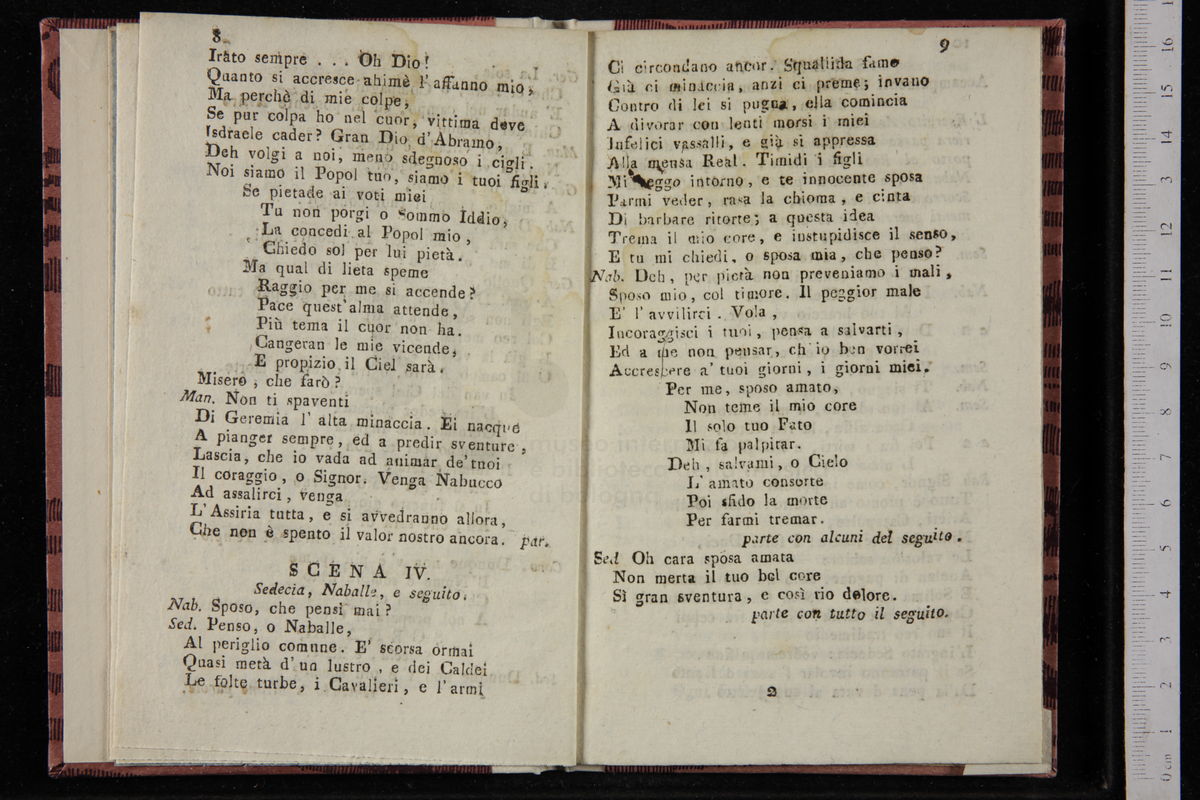 8
Irato sempre . . . Oh Dio!
Quanto si accresce ahimè l'affanno mio,
Ma perchè di mie colpe,
Se pur colpa ho nel cuor, vittima deve
Isdraele cader? Gran Dio d'Abramo,
Deh volgi a noi, meno sdegnoso i cigli.
Noi siamo il Popol tuo, siamo i tuoi figli.
Se pietade ai voti miei
Tu non porgi o Sommo Iddio,
La concedi al Popol mio,
Chiedo sol per lui pietà.
Ma qual di lieta speme
Raggio per me si accende?
Pace quest'alma attende,
Più tema il cuor non ha.
Cangeran le mie vicende,
E propizio il Ciel sarà.
Misero, che farò?
Man. Non ti spaventi
Di Geremia l'alta minaccia. Ei nacque
A pianger sempre, ed a predir sventure,
Lascia, che io vada ad animar de'tuoi
Il coraggio, o Signor. Venga Nabucco
Ad assalirci, venga
L'Assiria tutta, e si avvedranno allora,
Che non è spento il valor nostro ancora. par.
SCENA IV.
Sedecia, Naballe, e seguito.
Nab. Sposo, che pensi mai?
Sed. Penso, o Naballe,
Al periglio comune. E' scorsa ormai
Quasi metà d'un lustro, e dei Caldei
Le folte turbe, i Cavalieri, e l'armi
9
Ci circondano ancor. Squallida fame
Già ci minaccia, anzi ci preme; invano
Contro di lei si pugna, ella comincia
A divorar con lenti morsi i miei
Infelici vassalli, e già si appressa
Alla mensa Real. Timidi i figli
Mi veggo intorno, e te innocente sposa
Parmi veder, rasa la chioma, e cinta
Di barbare ritorte; a questa idea
Trema il mio core, e instupidisce il senso,
E tu mi chiedi, o sposa mia, che penso?
Nab. Deh, per pietà non preveniamo i mali,
Sposo mio, col timore. Il peggior male
E' l'avvilirci. Vola,
Incoraggisci i tuoi, pensa a salvarti,
Ed a me non pensar, ch'io ben vorrei
Accrescere a' tuoi giorni, i giorni miei.
Per me, sposo amato,
Non teme il mio core
Il solo tuo Fato
Mi fa palpitar.
Deh, salvami, o Cielo
L'amato consorte
Poi sfido la morte
Per farmi tremar.
parte con alcuni del seguito.
Sed Oh cara sposa amata
Non merta il tuo bel core
Sì gran sventura, e così rio dolore.
parte con tutto il seguito.
2
museo internazionale
e biblioteca
di bologna
0 cm 1 2 3 4 5 6 7 8 9 10 11 12 13 14 15 16